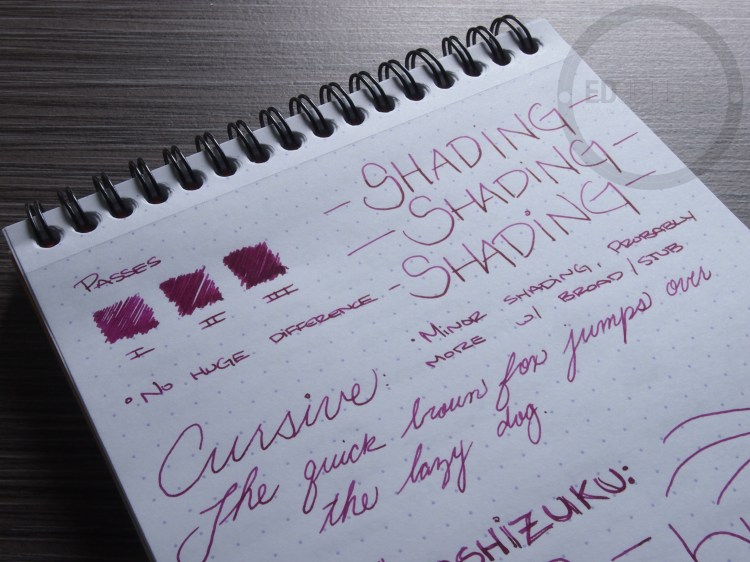 - SHADING -
- SHADING -
- SHADING -
PASSES
I II III
• NO HUGE DIFFERENCE
• MINOR SHADING, PROBABLY
MORE W/ BROAD/STUB
Cursive:
The quick brown fox jumps over
the lazy dog.